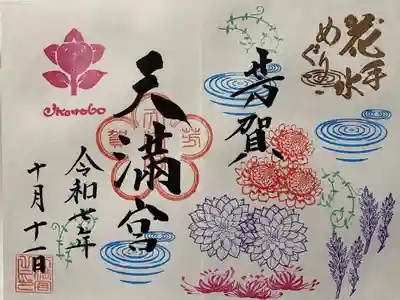 花手水
めぐり
芳賀
天満宮
令和七年
十月十一日
Ikenobo